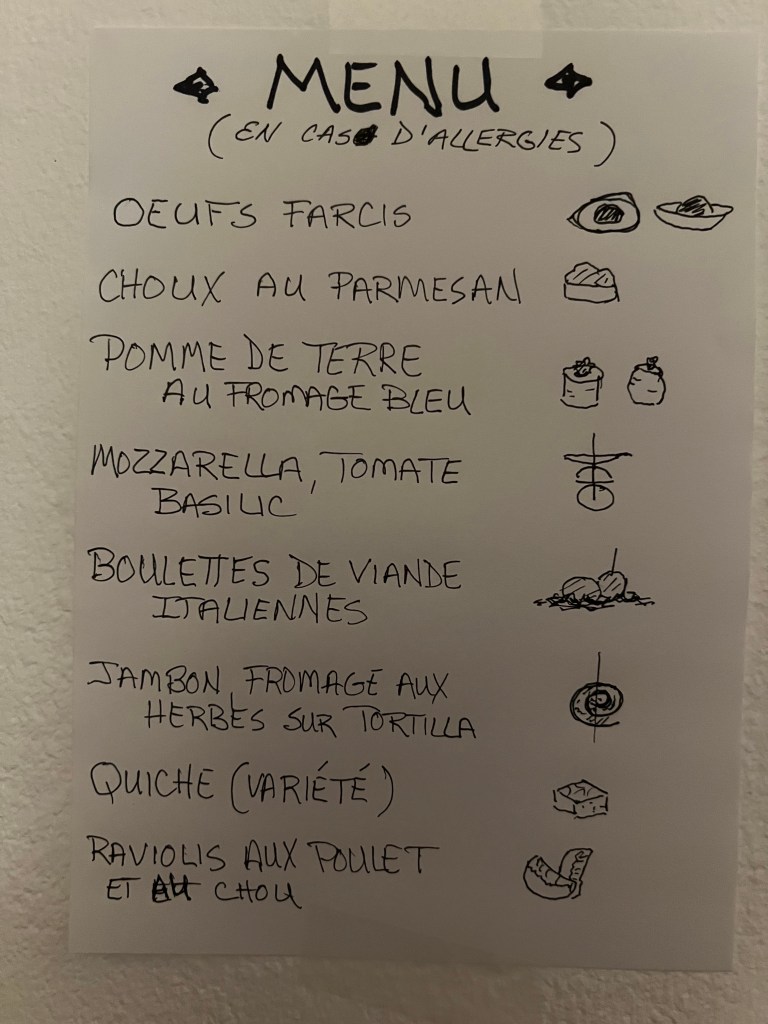 MENU
(EN CAS D'ALLERGIES)
OEUFS FARCIS
CHOUX AU PARMESAN
POMME DE TERRE
AU FROMAGE BLEU
MOZZARELLA, TOMATE
BASILIC
BOULETTES DE VIANDE
ITALIENNES
JAMBON, FROMAGE AUX
HERBES SUR TORTILLA
QUICHE (VARIÉTÉ)
RAVIOLIS AUX POULET
ET AU CHOU